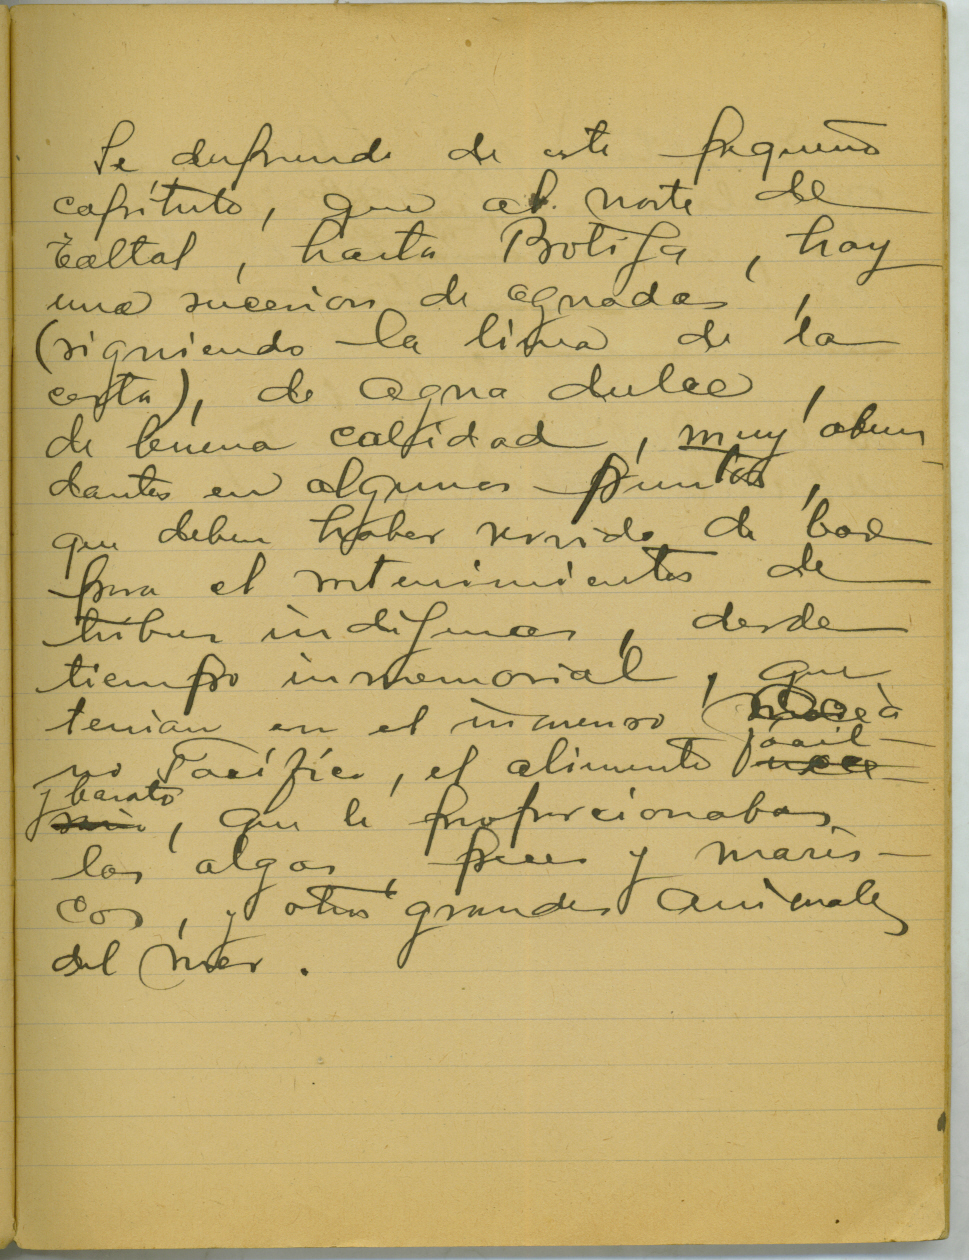 Se desprende de este pequeño
capítulo, que al norte de
Taltal, hasta Botija, hay
una sucesion de aguadas,
(siguiendo la linea de la
costa), de agua dulce,
de buena calidad, muy abun
dantes en algunos puntos,
que deben haber servido de base
para el sotenimientos de
tribus indígenas, desde
tiempo inmemorial, que
tenian en el inmenso Oceà
no Pacífico, el alimento facil
y barato, que le proporcionaban
las algas, peces y maris-
cos, y otros grandes animales
del mar.